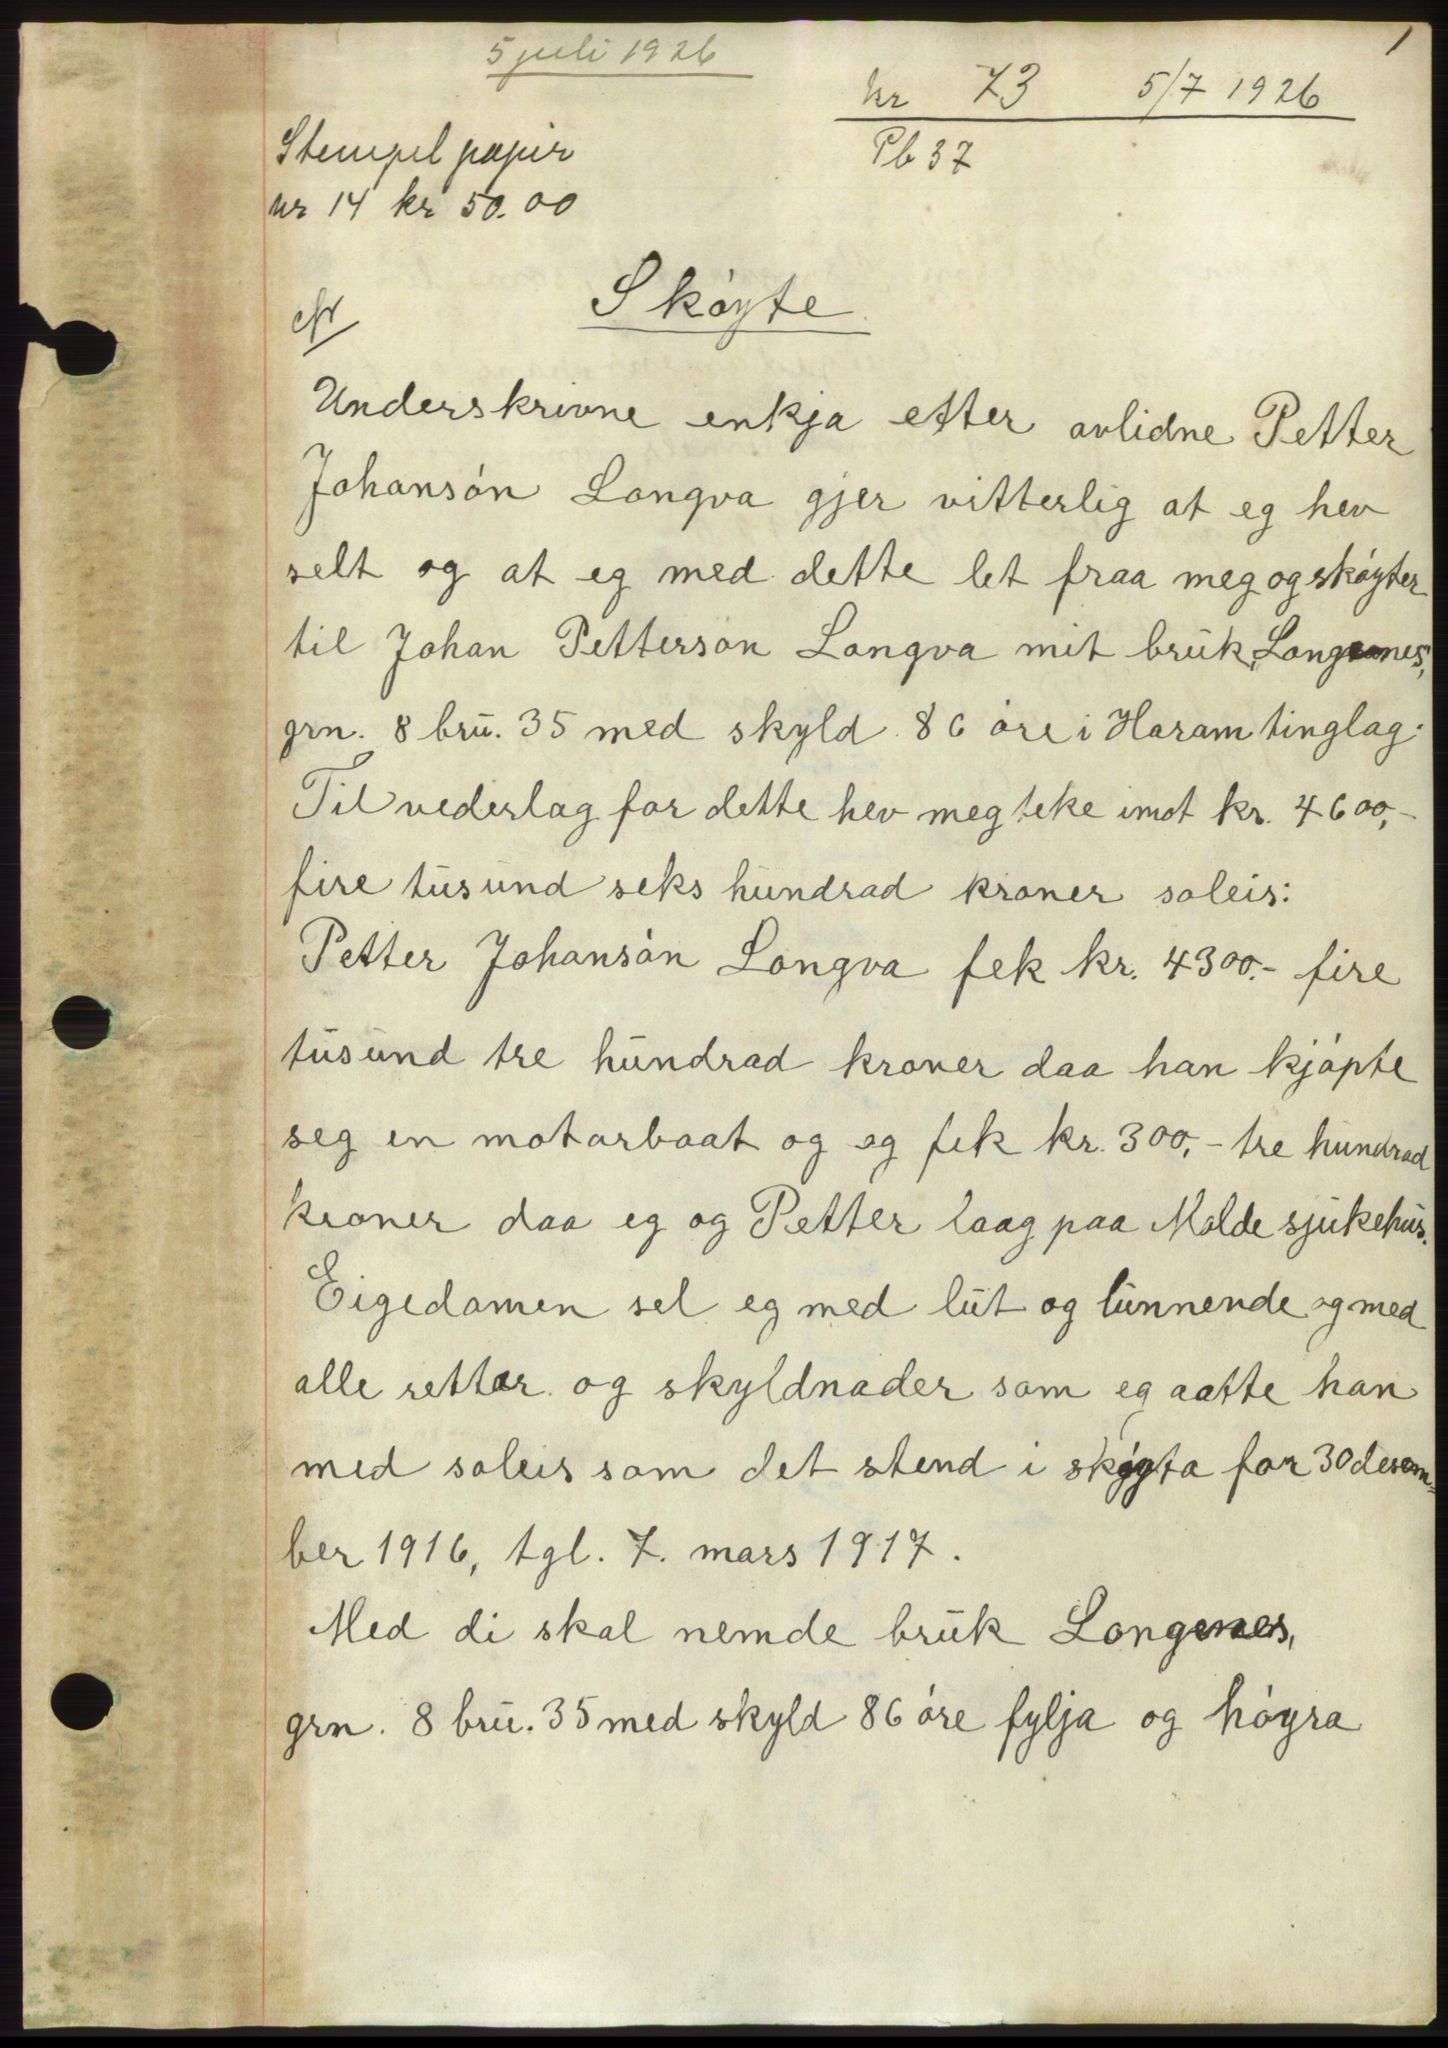 1
5 juli 1926
nr 73 5/7 1926
Pb 37
Stempel papir
nr 14 kr 50.00
Skøyte
Underskrivne enkja etter avlidne Petter
Johansøn Longva gjer vitterlig at eg hev
selt og at eg med dette let fraa meg og skøyter
til Johan Petterson Longva mit bruk, Longenes,
grn. 8 bru. 35 med skyld 86 øre i Haram tinglag.
Til vederlag for dette hev meg teke imot kr. 4600,-
fire tusund seks hundrad kroner soleis:
Petter Johansøn Longva fek kr. 4300.- fire
tusund tre hundrad kroner daa han kjøpte
seg en motorbaat og eg fek kr. 300,- tre hundrad
kroner daa eg og Petter laag paa Molde sjukehus.
Eigedomen sel eg med lut og lunnende og med
alle rettar og skyldnader som eg aatte han
med soleis som det stend i skøyta for 30 desem-
ber 1916, tgl. 7. mars 1917.
Med di skal nemde bruk Longenes,
grn. 8 bru. 35 med skyld 86 øre fylja og høyra